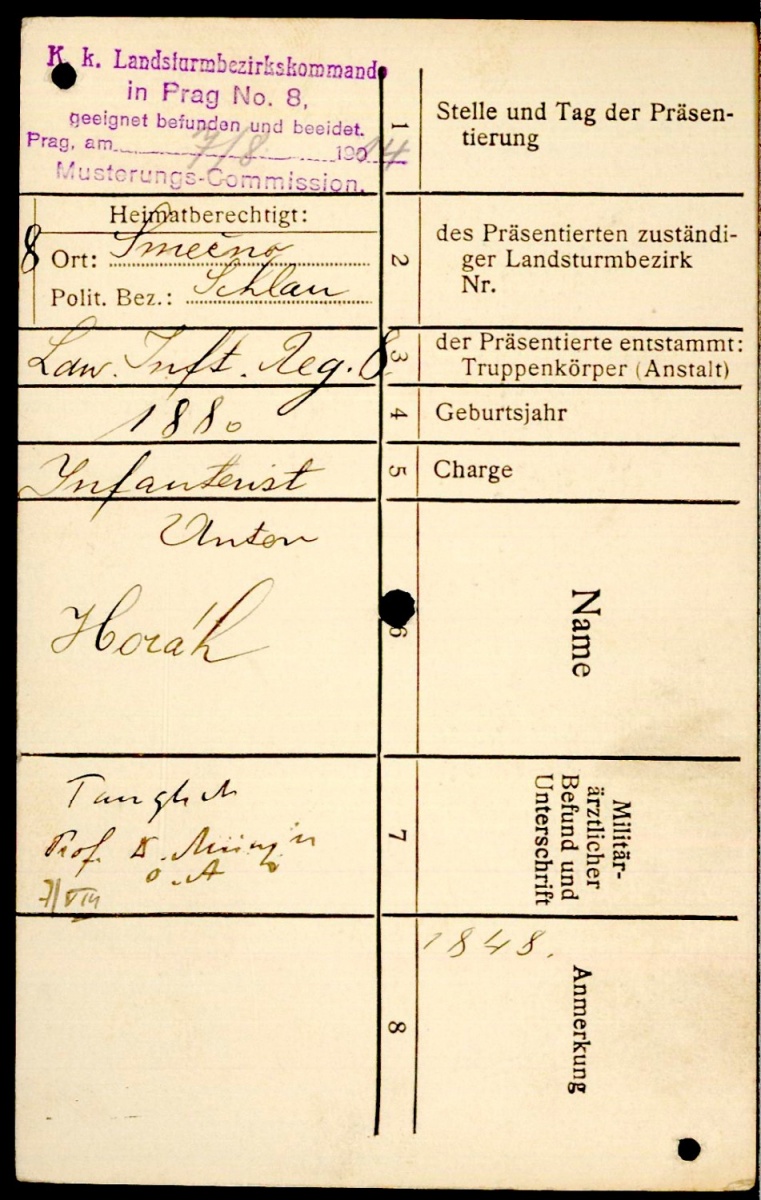 K. k. Landsturmbezirkskommando
in Prag No. 8,
geeignet befunden und beeidet.
Prag, am 7/8 1914
Musterungs-Commission.
1
Stelle und Tag der Präsen-
tierung
Heimatberechtigt:
8
Ort: Smečno
Polit. Bez.: Schlan
2
des Präsentierten zuständi-
ger Landsturmbezirk
Nr.
Ldw. Inft. Reg. 8
3
der Präsentierte entstammt:
Truppenkörper (Anstalt)
1880
4
Geburtsjahr
Infanterist
5
Charge
Anton
Horák
6
Name
Tauglich
Prof. D.
7/VIII
7
Militär-
ärztlicher
Befund und
Unterschrift
8
1848.
Anmerkung